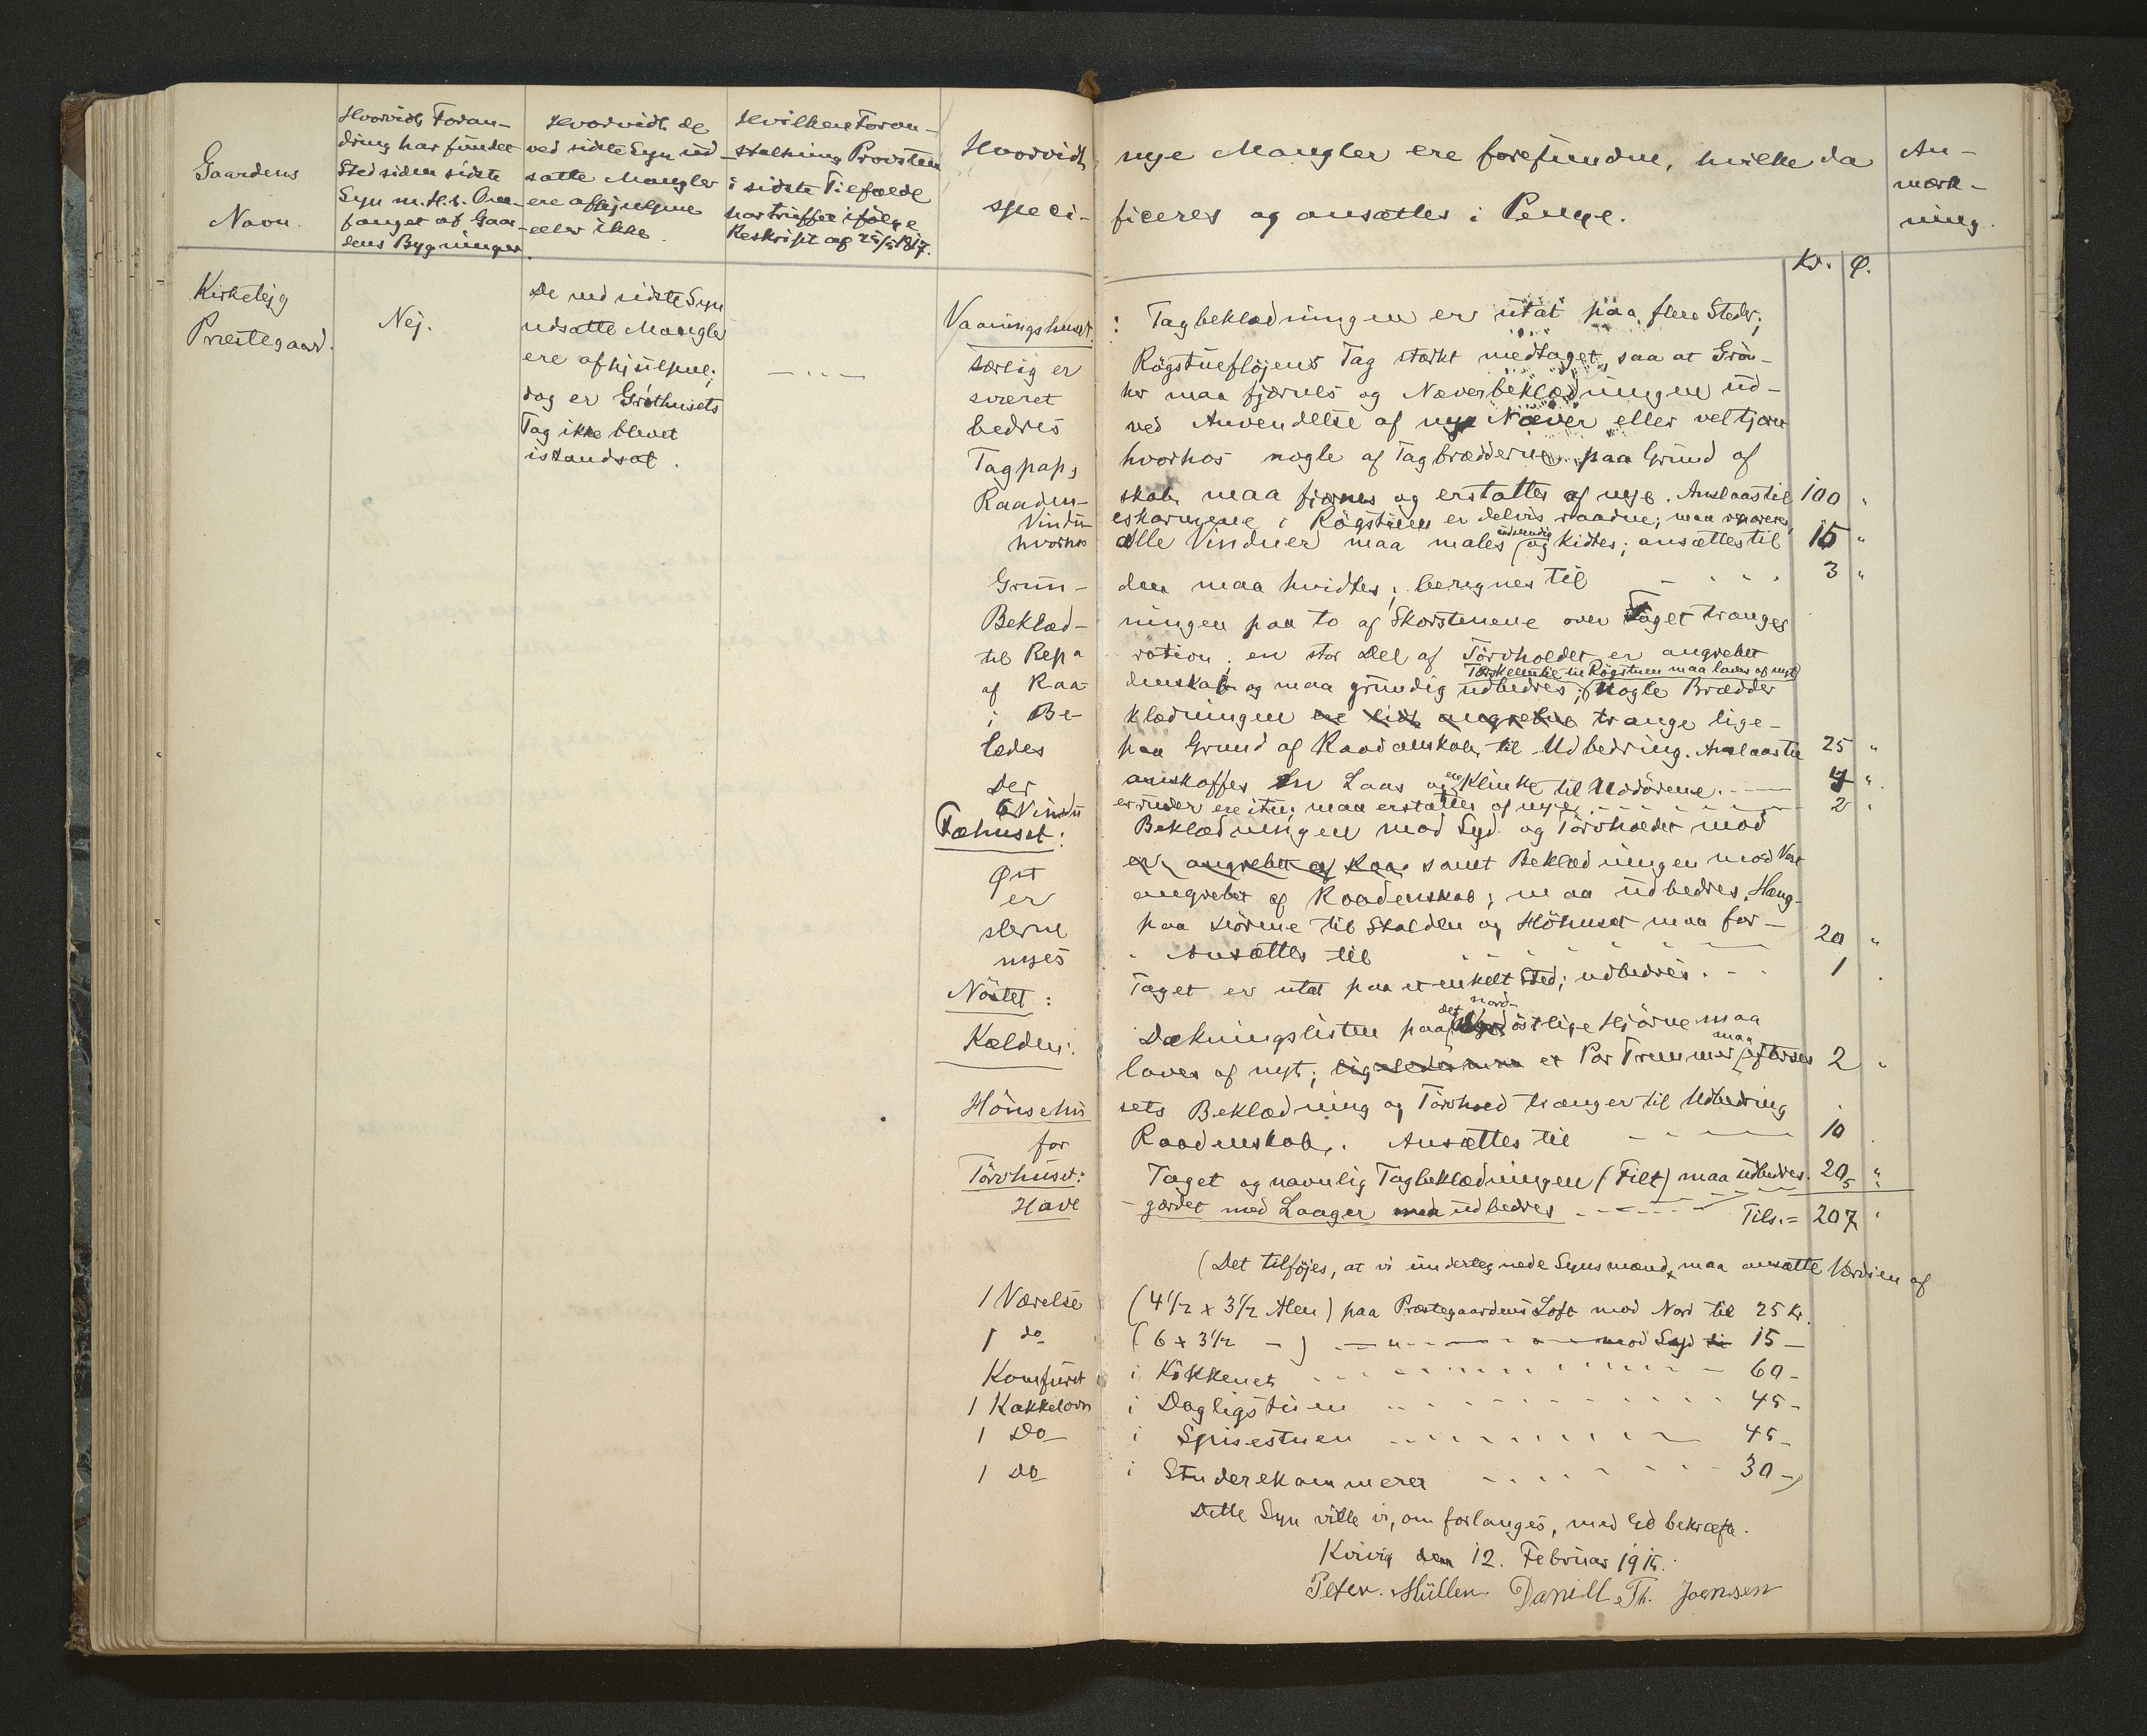 Gaardens
Navn.
Hvorvidt Foran-
dring har fundet
Sted siden sidste
Syn m. H. t. Om-
fanget af Gaar-
dens Bygninger.
Hvorvidt de
ved sidste Syn ud-
satte Mangler
ere afhjulpne
eller ikke.
Hvilken Foran-
staltning Provsten
i sidste Tilfælde
har truffet ifølge
Reskript af 25/7 1817.
Hvorvidt nye Mangler ere forefundne, hvilke da
speci- ficeres og ansættes i Penge.
An-
mærk-
ning.
Kr. Ø.
Kirkelejg
Præstegaard.
Nej.
De ved sidste Syn
udsatte Mangler
ere afhjulpne;
dog er Gröthusets
Tag ikke blevet
istandsat.
— „ —
Vaaningshuset: Tagbeklædningen er utæt paa flere Steder;
særlig er Rögstuefløjens Tag stærkt medtaget, saa at Grön-
sværet her maa fjærnes og Næverbeklædningen ud-
bedres ved Anvendelse af nye Næver eller veltjæret
Tagpap, hvorhos nogle af Tagbrædderne paa Grund af
Raaden- skab maa fjærnes og erstattes af nye. Anslaas til 100 „
Vindu- eskarmene i Rögstuen er delvis raadne; maa repareres,
hvorhos alle Vinduer maa males udvendig og kittes; ansættes til 15 „
Grun- den maa hvidtes; beregnes til 3 „
Beklæd- ningen paa to af Skorstenene over Taget trænger
til Repa- ration; en stor Del af Törvholdet er angrebet
af Raa- denskab og maa grundig udbedres; Tærskelen til Rögstuen maa laves af nyt; Nogle Brædder
i Be- klædningen ere lidt angrebne trænge lige-
ledes paa Grund af Raadenskab til Udbedring. Anslaas til 25 „
Der anskaffes en Laas og en Klinke til Uddörene. 4 „
6 Vindu- esruder ere itu; maa erstattes af nye 2 „
Fæhuset: Beklædningen mod Syd og Törvholdet mod
Øst er angrebet af Raa samt Beklædningen mod Vest
er angrebet af Raadenskab; maa udbedres. Hæng-
slerne paa Dörene til Stalden og Höhuset maa for-
nyes. Ansættes til 20 „
Nöstet: Taget er utæt paa et enkelt Sted; udbedres. 1 „
Kælderen: Dækningslisten paa det nord-östlige Hjörne maa
laves af nyt; ligeledes maa et Par Tremmer maa efterses 2 „
Hönsehu- sets Beklædning og Törvhold trænger til Udbedring
for Raadenskab. Ansættes til 10 „
Törvhuset: Taget og navnlig Tagbeklædningen (Filt) maa udbedres. 20 „
Have- gærdet med Laager maa udbedres 5 „
Tils. = 207 „
(Det tilföjes, at vi undertegnede Synsmænd maa ansætte Værdien af
1 Værelse (4 1/2 x 3 1/2 Alen) paa Præstegaardens Loft mod Nord til 25 Kr.
1 do (6 x 3 1/2 — ) — „ — mod Syd til 15 —
Komfuret i Kökkenet 60 -
1 Kakkelovn i Dagligstuen 45 -
1 Do i Spisestuen 45 -
1 do i Studerekammeret 30 -)
Dette Syn ville vi, om forlanges, med Ed bekræfte.
Kvivig den 12. Februar 1915.
Peter Müller Daniell Th. Joensen